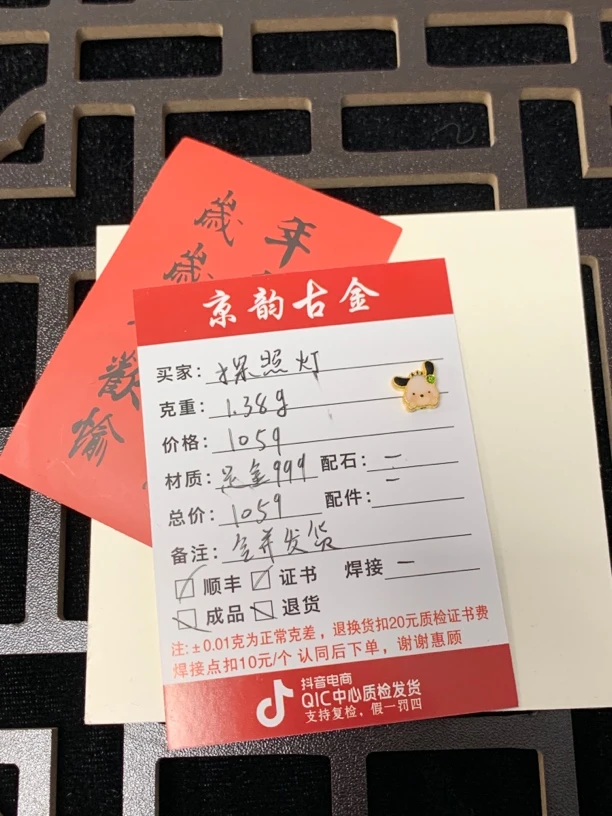 年
歲
歲
歡
愉
京韵古金
买家：探照灯
克重：1.38g
价格：1059
材质：足金999 配石：一
总价：1059 配件：一
备注：合并发货
顺丰 证书 焊接 一
成品 退货
注:±0.01克为正常克差，退换货扣20元质检证书费
焊接点扣10元/个 认同后下单，谢谢惠顾
抖音电商
QIC中心质检发货
支持复检，假一罚四